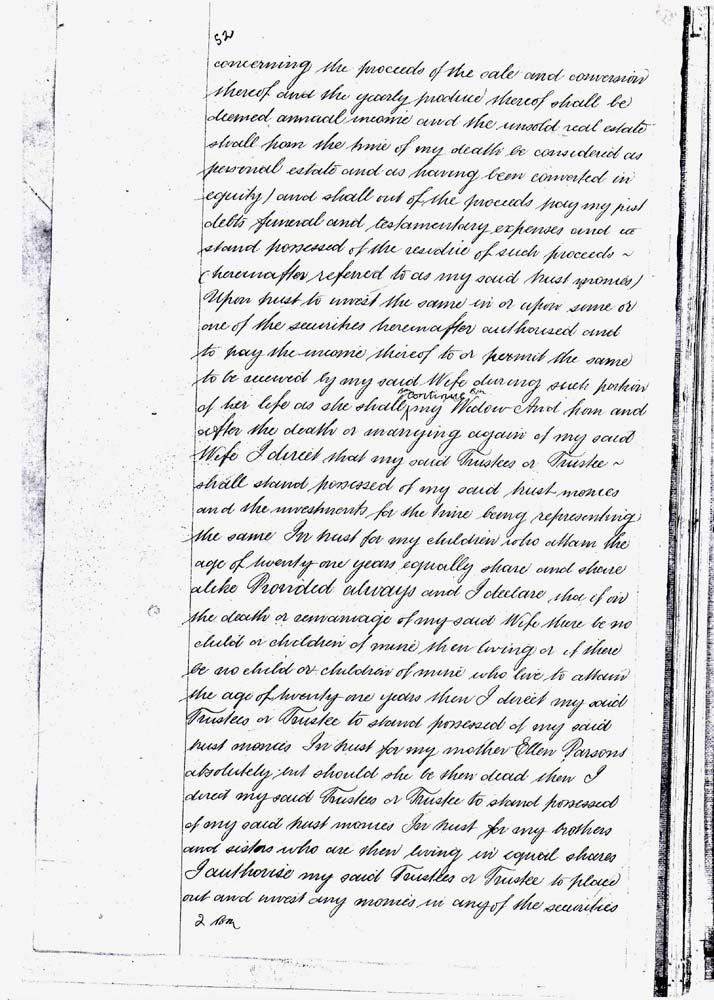 52
concerning the proceeds of the sale and conversion
thereof and the yearly produce thereof shall be
deemed annual income and the unsold real estate
shall from the time of my death be considered as
personal estate and as having been converted in
equity) and shall out of the proceeds pay my just
debts funeral and testamentary expenses and
stand possessed of the residue of such proceeds ~
(hereinafter referred to as my said trust monies)
Upon trust to invest the same in or upon some or
one of the securities hereinafter authorised and
to pay the income thereof to or permit the same
to be received by my said Wife during such portion
continue
of her life as she shall my Widow And from and
after the death or marrying again of my said
Wife I direct that my said Trustees or Trustee ~
shall stand possessed of my said trust monies
and the investments for the time being representing
the same In trust for my children who attain the
age of twenty one years equally share and share
alike Provided always and I declare that if on
the death or remarriage of my said Wife there be no
child or children of mine then living or if there
be no child or children of mine who live to attain
the age of twenty one years then I direct my said
Trustees or Trustee to stand possessed of my said
trust monies In trust for my mother Ellen Parsons
absolutely but should she be then dead then I
direct my said Trustees or Trustee to stand possessed
of my said trust monies In trust for my brothers
and sisters who are then living in equal shares
I authorise my said Trustees or Trustee to place
out and invest any monies in any of the securities
2